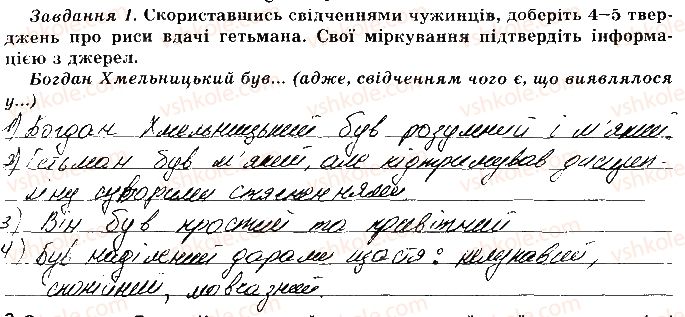 Завдання 1. Скориставшись свідченнями чужинців, доберіть 4—5 твер-
джень про риси вдачі гетьмана. Свої міркування підтвердіть інформа-
цією з джерел.
Богдан Хмельницький був... (адже, свідченням чого є, що виявлялося
у...)
1) Богдан Хмельницький був розумний і м'який.
2) Гетьман був м'який, але підтримував дисцип-
ліну суворими стягненнями
3) Він був простий та привітний
4) був наділений дарами щастя: нелукавий,
спокійний,